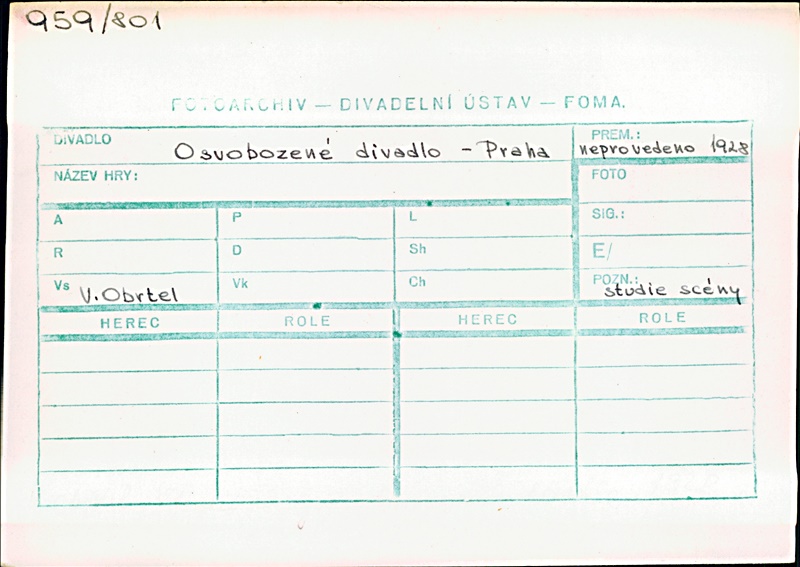 959/801
FOTOARCHIV — DIVADELNÍ ÚSTAV — FOMA.
DIVADLO Osvobozené divadlo - Praha
PREM.: neprovedeno 1928
NÁZEV HRY:
FOTO
A P L SIG.:
R D Sh E/
Vs V. Obrtel Vk Ch POZN.: studie scény
HEREC ROLE HEREC ROLE